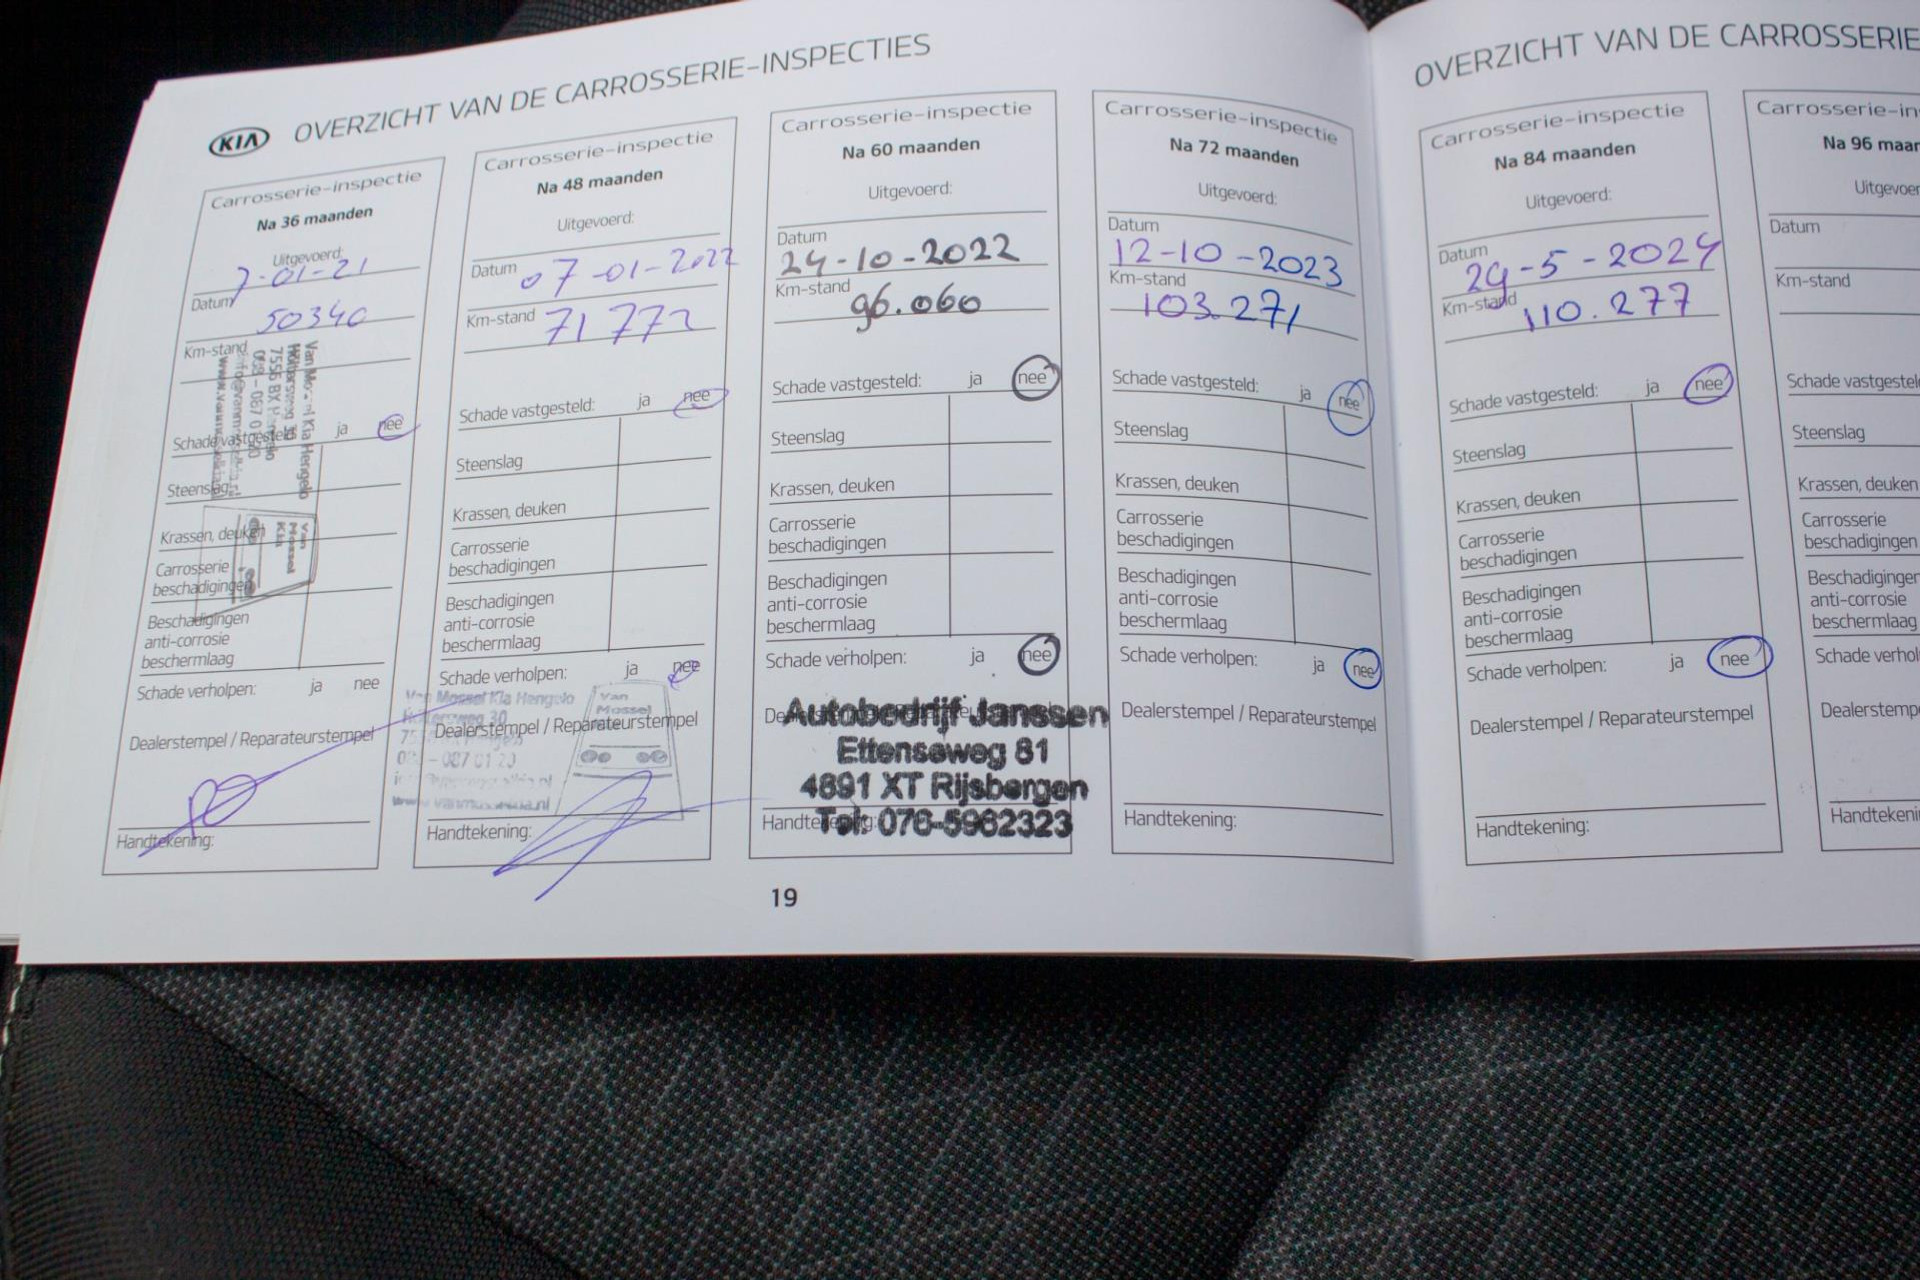 KIA OVERZICHT VAN DE CARROSSERIE-INSPECTIES
Carrosserie-inspectie
Na 36 maanden
Uitgevoerd:
7-01-21
Datum
50340
Km-stand
Schade vastgesteld: ja nee
Steenslag
Krassen, deuken
Carrosserie
beschadigingen
Beschadigingen
anti-corrosie
beschermlaag
Schade verholpen: ja nee
Dealerstempel / Reparateurstempel
Handtekening:
Kia Hengelo
Van
Mossel
Kia
Carrosserie-inspectie
Na 48 maanden
Uitgevoerd:
Datum 07-01-2022
Km-stand 71772
Schade vastgesteld: ja nee
Steenslag
Krassen, deuken
Carrosserie
beschadigingen
Beschadigingen
anti-corrosie
beschermlaag
Schade verholpen: ja nee
Van Mossel Kia Hengelo
Van
Mossel
Dealerstempel / Reparateurstempel
Handtekening:
Carrosserie-inspectie
Na 60 maanden
Uitgevoerd:
Datum
24-10-2022
Km-stand
96.060
Schade vastgesteld: ja nee
Steenslag
Krassen, deuken
Carrosserie
beschadigingen
Beschadigingen
anti-corrosie
beschermlaag
Schade verholpen: ja nee
Autobedrijf Janssen
Ettenseweg 81
4891 XT Rijsbergen
Tel: 076-5962323
Carrosserie-inspectie
Na 72 maanden
Uitgevoerd:
Datum
12-10-2023
Km-stand
103.271
Schade vastgesteld: ja nee
Steenslag
Krassen, deuken
Carrosserie
beschadigingen
Beschadigingen
anti-corrosie
beschermlaag
Schade verholpen: ja nee
Dealerstempel / Reparateurstempel
Handtekening:
19
OVERZICHT VAN DE CARROSSERIE
Carrosserie-inspectie
Na 84 maanden
Uitgevoerd:
Datum
29-5-2024
Km-stand
110.277
Schade vastgesteld: ja nee
Steenslag
Krassen, deuken
Carrosserie
beschadigingen
Beschadigingen
anti-corrosie
beschermlaag
Schade verholpen: ja nee
Dealerstempel / Reparateurstempel
Handtekening:
Carrosserie-in
Na 96 maan
Uitgevoer
Datum
Km-stand
Schade vastgestel
Steenslag
Krassen, deuken
Carrosserie
beschadigingen
Beschadigingen
anti-corrosie
beschermlaag
Schade verhol
Dealerstemp
Handtekeni